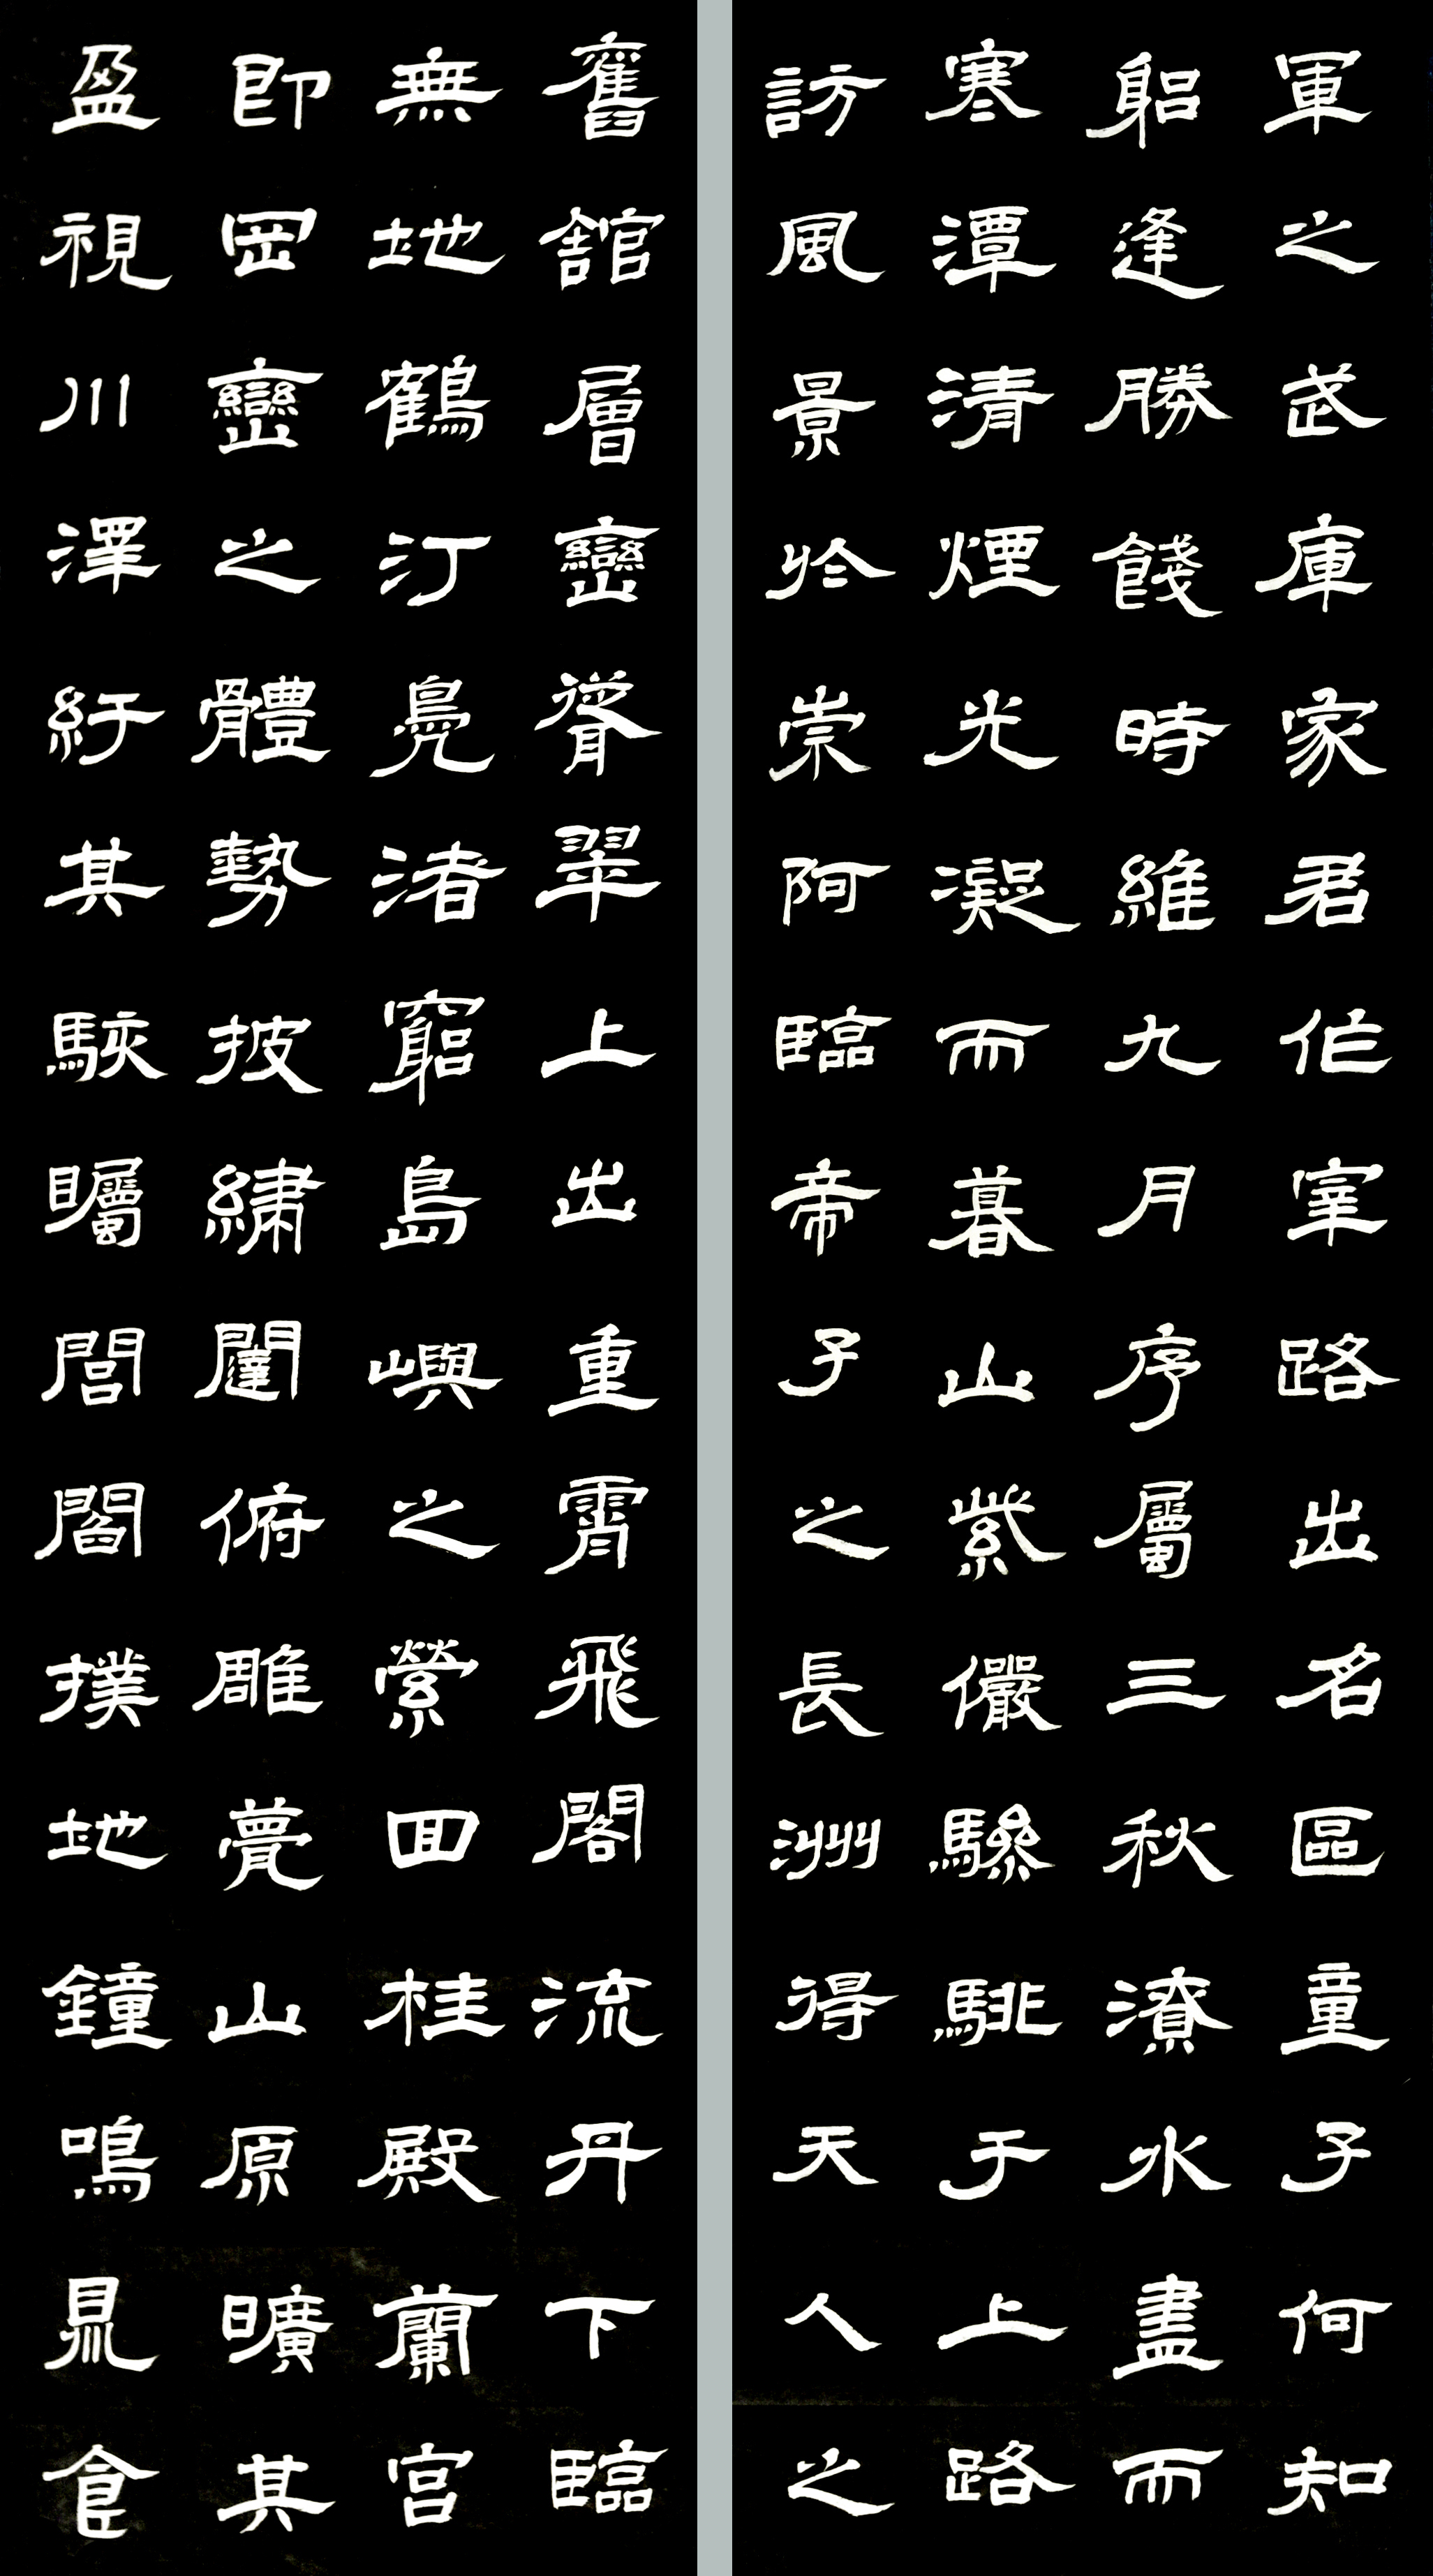 軍之武庫家君作宰路出名區童子何知
躬逢勝餞時維九月序屬三秋潦水盡而
寒潭清煙光凝而暮山紫儼驂騑于上路
訪風景於崇阿臨帝子之長洲得天人之
舊館層巒聳翠上出重霄飛閣流丹下臨
無地鶴汀鳧渚窮島嶼之縈回桂殿蘭宮
即岡巒之體勢披繡闥俯雕甍山原曠其
盈視川澤紆其駭矚閭閻撲地鐘鳴鼎食